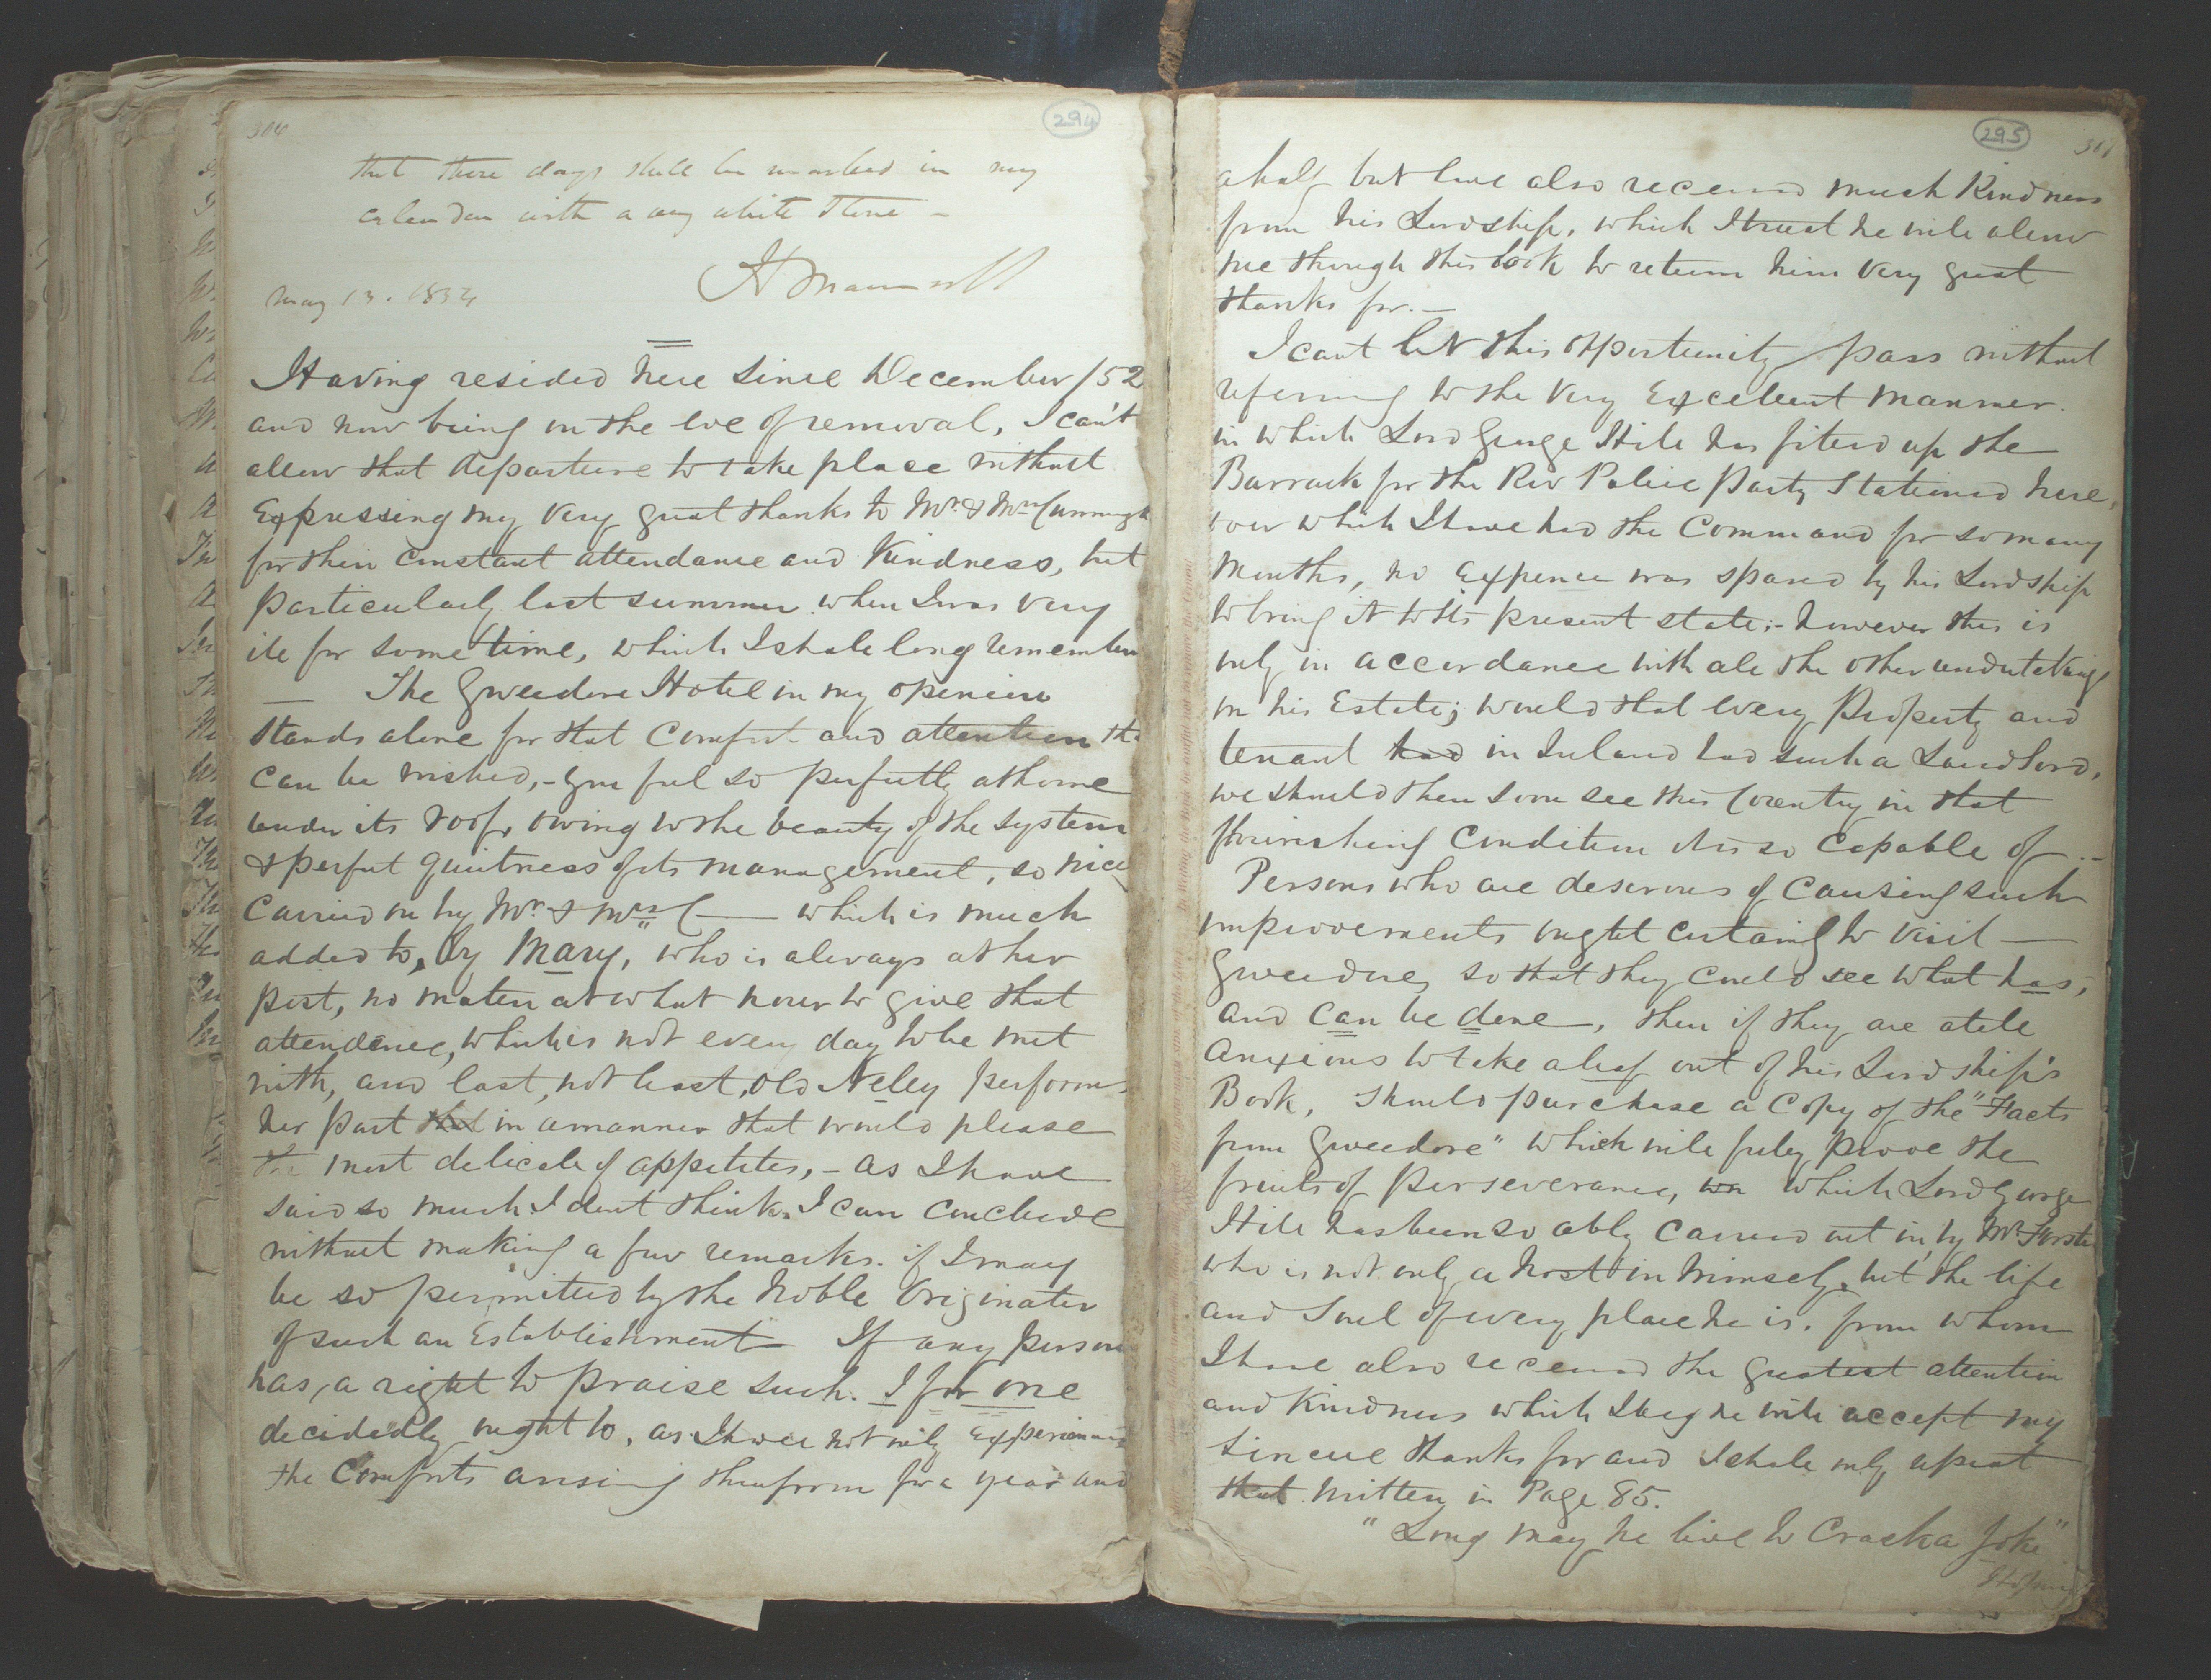 304
294
that these days shall be marked in my
calendar with a very white stone –
May 13. 1854
Having resided here since December /52
and now being on the eve of removal, I can't
allow that departure to take place without
Expressing my very great thanks to Mr. & Mrs Cunningh
for their constant attendance and Kindness, but
particularly last summer when I was very
ile for some time, which I shale long remember
— The Gweedore Hotel in my openion
Stands alone for that Comfort and attention tha
can be wished, – you feel so perfectly at home
under its roof, owing to the beauty of the system
& perfect quietness of its management, so nice
Carried on by Mr. & Mrs C—— which is much
added to, by Mary, who is always at her
post, no mater at what hour to give that
attendence, which is not every day to be met
with, and last, not least, old Neley performs
her part that in a manner that would please
the most delicate of appetites, – as I have
said so much I dont think I can conclude
without making a few remarks. if I may
be so permitted by the Noble Originator
of such an Establishment If any person
has, a right to praise such. I for one
decidedly ought to, as I have not only Experienced
the Comforts arising therefrom for a year and
295
a half but have also received much Kindness
from his Lordship, which I trust he will alow
me through this book to return him very great
thanks for. —
I cant let this opportunity pass without
refering to the very Excellent manner
in which Lord George Hill has fited up the
Barrack for the Rev Police Party Stationed here,
over which I have had the Command for so many
Months, no Expence was spared by his Lordship
to bring it to its present state; – however this is
only in accordance with all the other undutakings
on his Estate; would that every Property and
tenant had in Ireland had such a Landlord,
we should then soon see this Country in that
flourishing Condition it is so Capable of –
Persons who are desirous of Causing such
improvements ought certainly to visit —
Gweedore, so that they could see what has,
and can be done, then if they are atele
Anxious to take a leaf out of his Lordship's
Book, should purchase a Copy of the "Facts
from Gweedore" which will fuly prove the
fruits of Perseverance, which Lord George
Hill has been so ably Carried out in by Mr. Forster
who is not only a host in himself, but the life
and Soul of every place he is. from whom
I have also received the greatest attention
and Kindness which I beg he will accept my
Sincere thanks for and I shale only repeat
that written in Page 85.
"Long may he live to Crack a Joke"